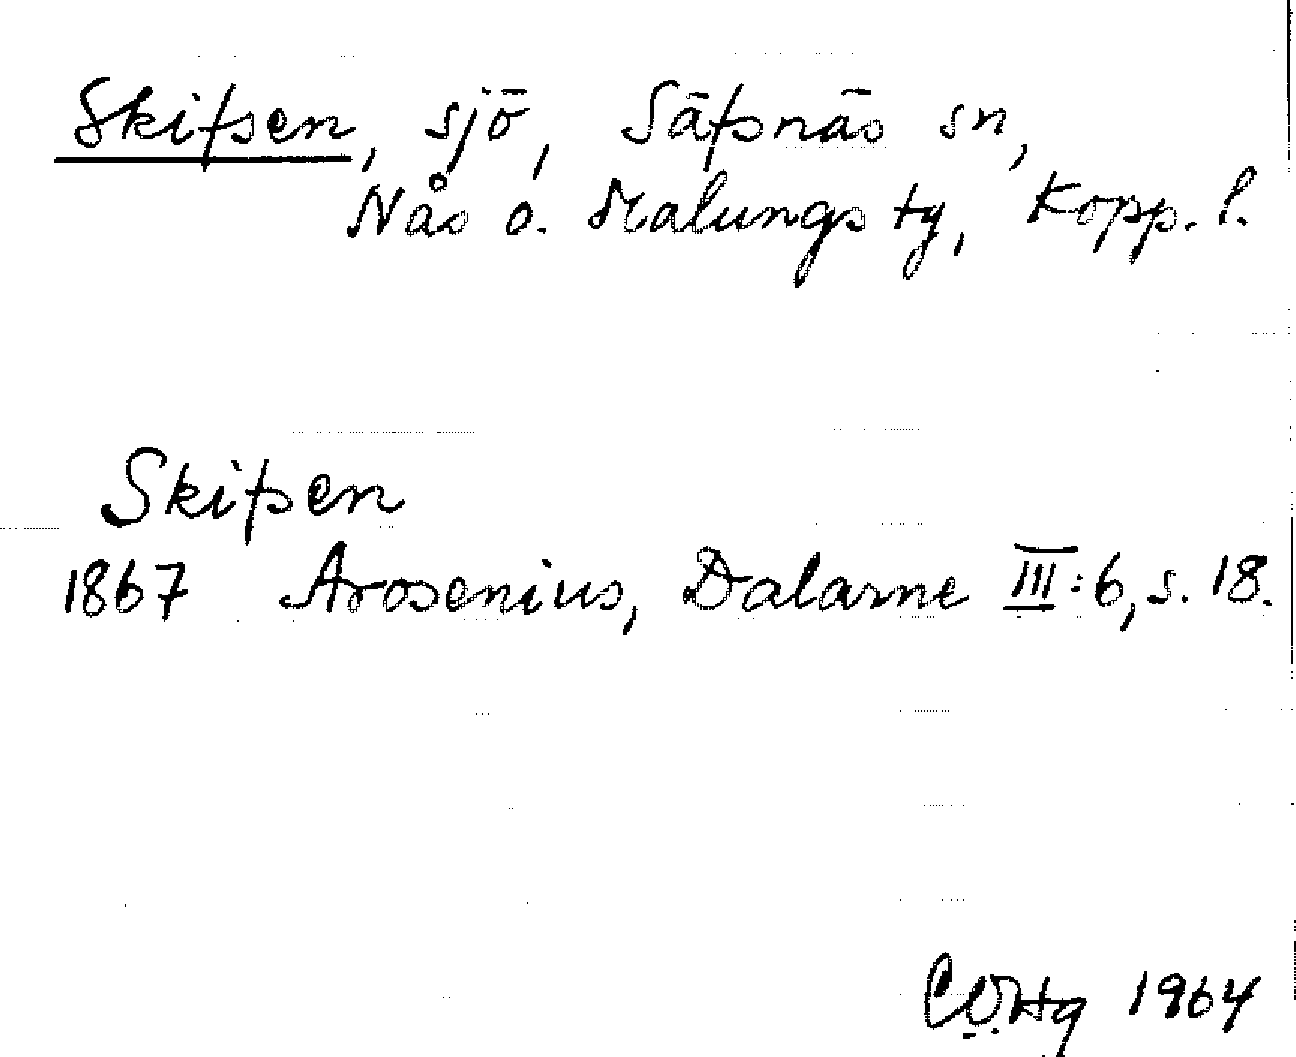 Skifsen, sjö, Säfsnäs sn,
Nås o. Malungs tg, Kopp. l.
Skifsen
1867 Arosenius, Dalarne III:6, s. 18.
1964